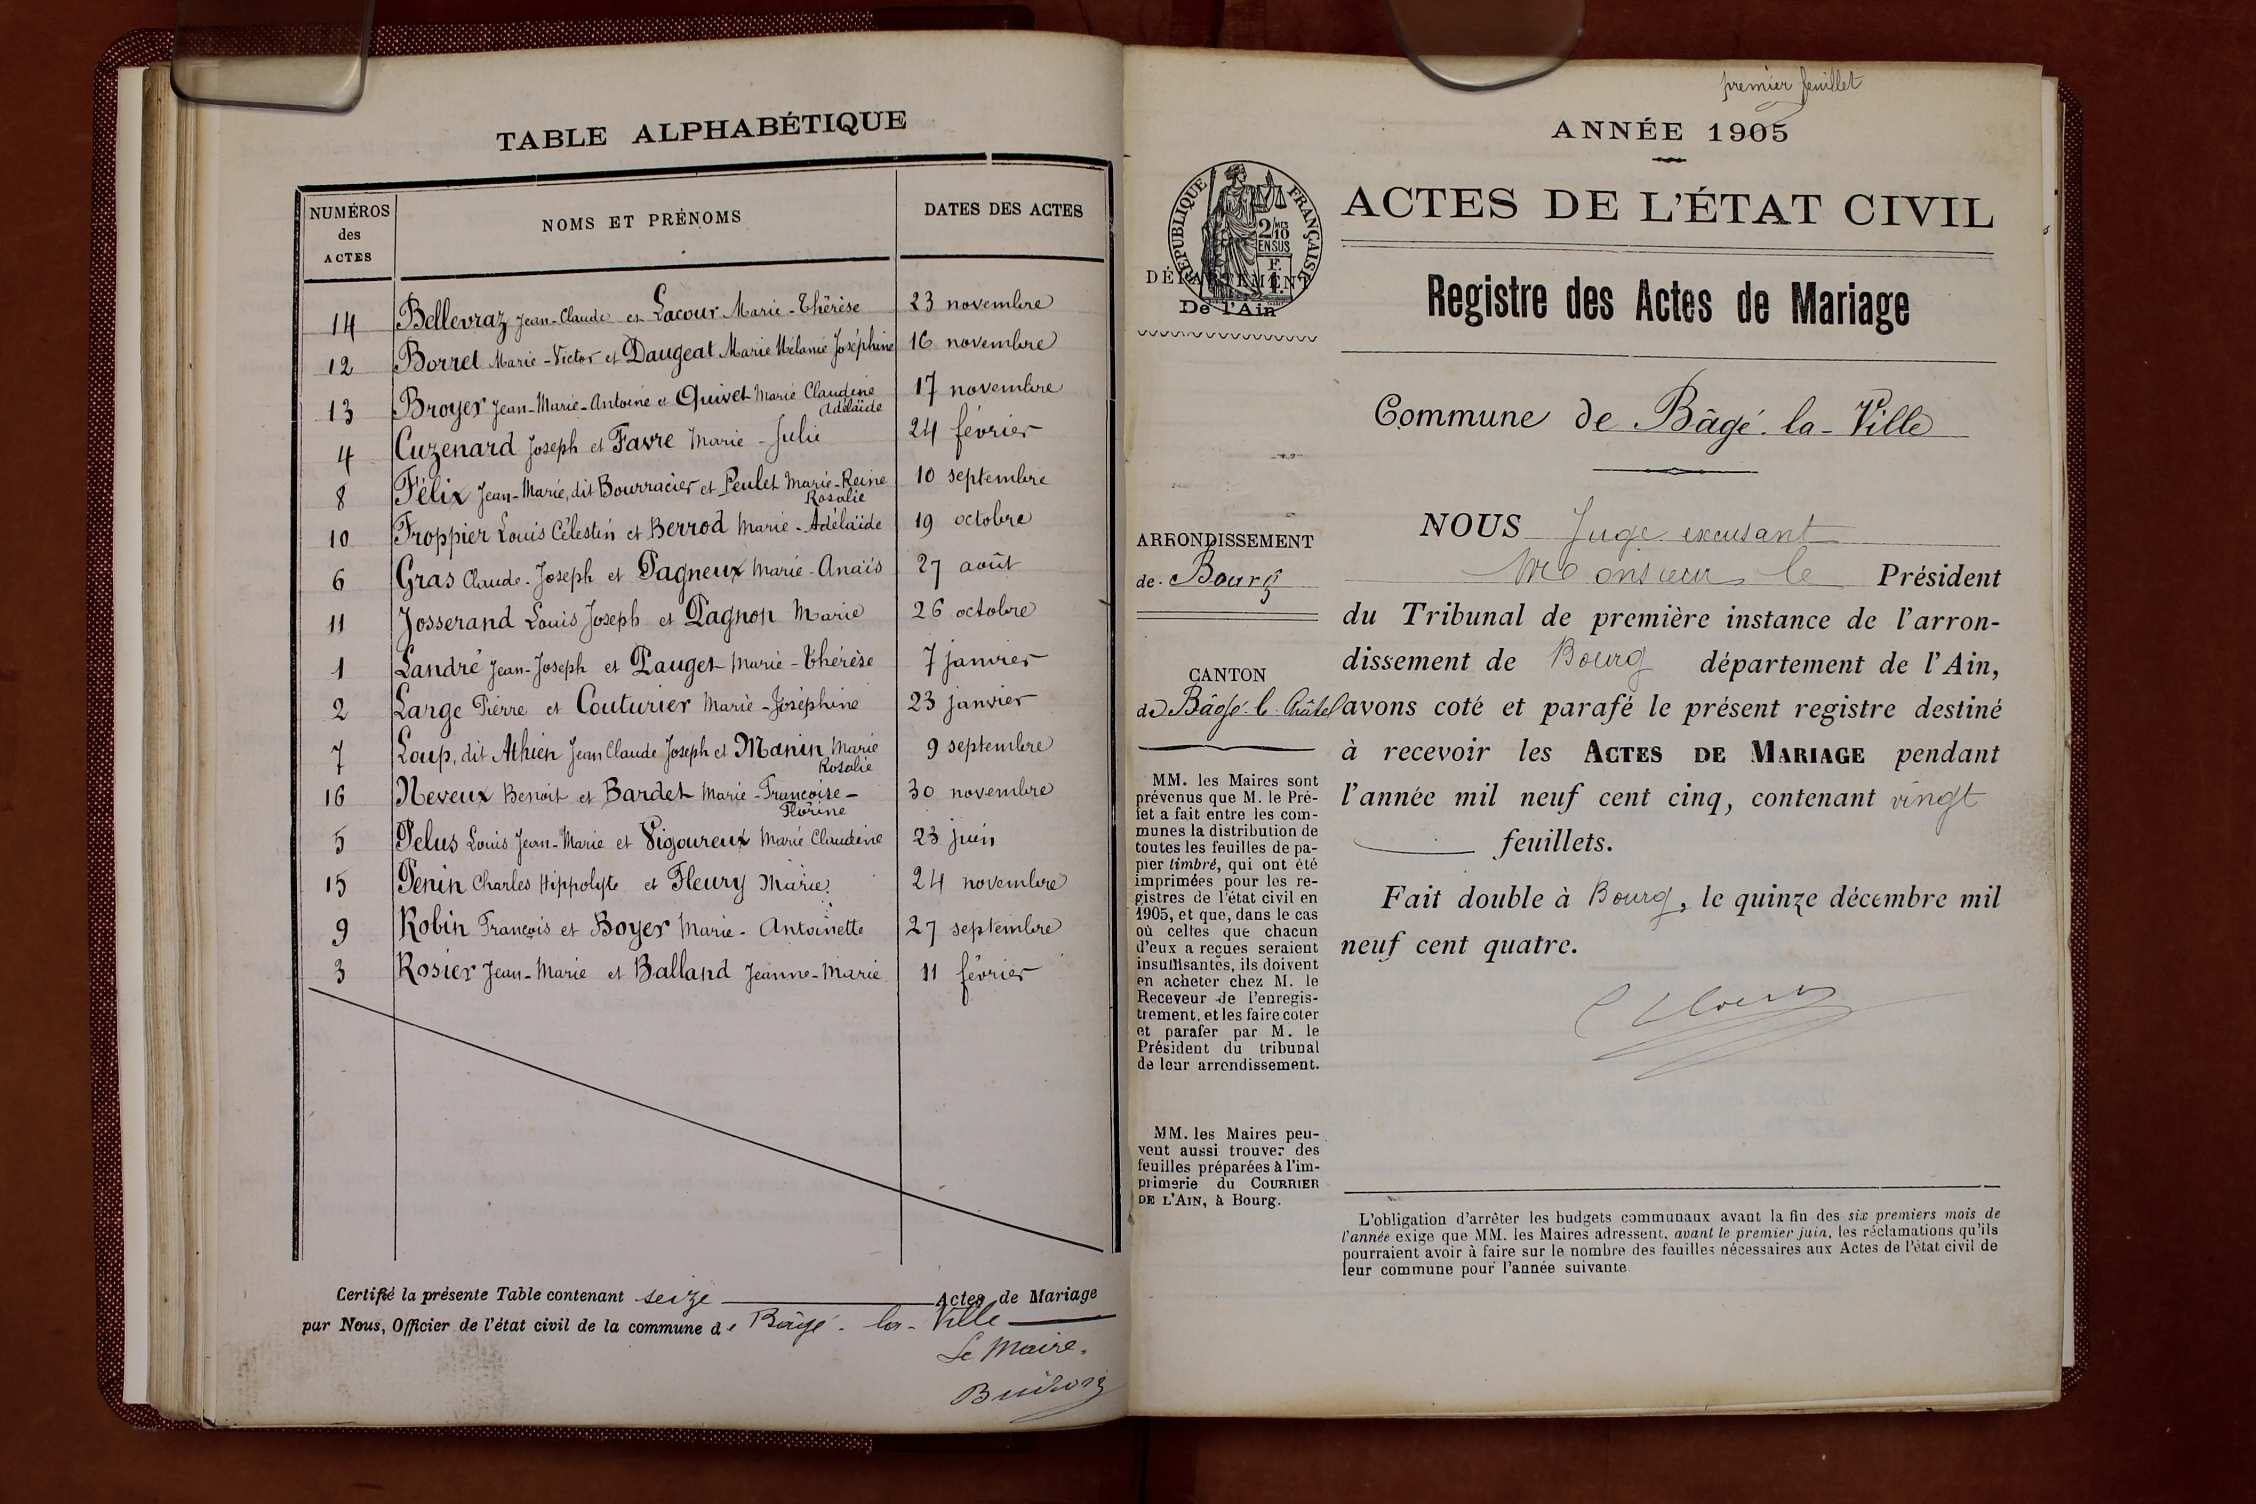 TABLE ALPHABÉTIQUE
NUMÉROS des ACTES
NOMS ET PRÉNOMS
DATES DES ACTES
14 Bellevraz Jean-Claude et Lacour Marie-Thérèse 23 novembre
12 Borret Marie-Victor et Daugeat Marie Mélanie Joséphine 16 novembre
13 Broyer Jean-Marie-Antoine et Quivet Marie Claudine Adélaïde 17 novembre
4 Cuzenard Joseph et Favre Marie-Julie 24 février
8 Félix Jean-Marie, dit Bourracier et Peulet Marie-Reine Rosalie 10 septembre
10 Froppier Louis Célestin et Berrod Marie-Adélaïde 19 octobre
6 Gras Claude-Joseph et Pagneux Marie-Anaïs 27 août
11 Josserand Louis Joseph et Pagnon Marie 26 octobre
1 Landré Jean-Joseph et Pauget Marie-Thérèse 7 janvier
2 Large Pierre et Couturier Marie-Joséphine 23 janvier
7 Loup, dit Athien Jean Claude Joseph et Manin Marie Rosalie 9 septembre
16 Neveux Benoit et Bardet Marie-Françoise-Florine 30 novembre
5 Pelus Louis Jean-Marie et Vigoureux Marie Claudine 23 juin
15 Penin Charles Hippolyte et Fleury Marie 24 novembre
9 Robin François et Boyer Marie-Antoinette 27 septembre
3 Rosier Jean-Marie et Balland Jeanne-Marie 11 février
Certifié la présente Table contenant seize Actes de Mariage
par Nous, Officier de l'état civil de la commune de Bâgé-la-Ville
Le Maire.
premier feuillet
ANNÉE 1905
ACTES DE L'ÉTAT CIVIL
RÉPUBLIQUE FRANÇAISE
2/10 MES
EN SUS
DÉPARTEMENT
De l'Ain
Registre des Actes de Mariage
Commune de Bâgé-la-Ville
ARRONDISSEMENT
de Bourg
CANTON
de Bâgé-l. Châtel
MM. les Maires sont
prévenus que M. le Pré-
fet a fait entre les com-
munes la distribution de
toutes les feuilles de pa-
pier timbré, qui ont été
imprimées pour les re-
gistres de l'état civil en
1905, et que, dans le cas
où celles que chacun
d'eux a reçues seraient
insuffisantes, ils doivent
en acheter chez M. le
Receveur de l'enregis-
trement, et les faire coter
et parafer par M. le
Président du tribunal
de leur arrondissement.
MM. les Maires peu-
vent aussi trouver des
feuilles préparées à l'im-
primerie du COURRIER
DE L'AIN, à Bourg.
NOUS Juge excusant
Monsieur le Président
du Tribunal de première instance de l'arron-
dissement de Bourg département de l'Ain,
avons coté et parafé le présent registre destiné
à recevoir les ACTES DE MARIAGE pendant
l'année mil neuf cent cinq, contenant vingt
feuillets.
Fait double à Bourg, le quinze décembre mil
neuf cent quatre.
L'obligation d'arrêter les budgets communaux avant la fin des six premiers mois de
l'année exige que MM. les Maires adressent, avant le premier juin, les réclamations qu'ils
pourraient avoir à faire sur le nombre des feuilles nécessaires aux Actes de l'état civil de
leur commune pour l'année suivante